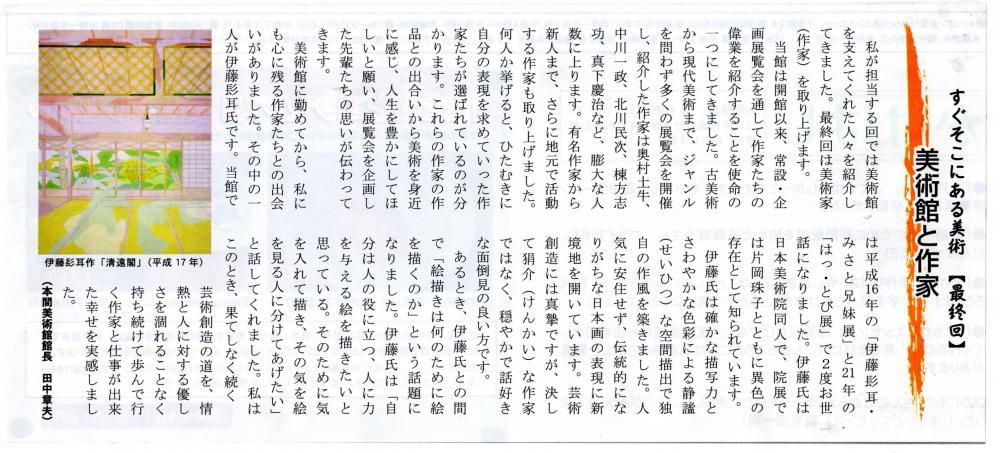 すぐそこにある美術【最終回】
美術館と作家
私が担当する回では美術館
を支えてくれた人々を紹介し
てきました。最終回は美術家
(作家)を取り上げます。
当館は開館以来、常設・企
画展覧会を通して作家たちの
偉業を紹介することを使命の
一つにしてきました。古美術
から現代美術まで、ジャンル
を問わず多くの展覧会を開催
し、紹介した作家は奥村土牛、
中川一政、北川民次、棟方志
功、真下慶治など、膨大な人
数に上ります。有名作家から
新人まで、さらに地元で活動
する作家も取り上げました。
何人か挙げると、ひたむきに
自分の表現を求めていった作
家たちが選ばれているのが分
かります。これらの作家の作
品との出合いから美術を身近
に感じ、人生を豊かにしてほ
しいと願い、展覧会を企画し
た先輩たちの思いが伝わって
きます。
美術館に勤めてから、私に
も心に残る作家たちとの出会
いがありました。その中の一
人が伊藤髟耳氏です。当館で
は平成16年の「伊藤髟耳・
みさと兄妹展」と21年の
「はっ・とび展」で2度お世
話になりました。伊藤氏は
日本美術院同人で、院展で
は片岡珠子とともに異色の
存在として知られています。
伊藤氏は確かな描写力と
さわやかな色彩による静謐
(せいひつ)な空間描出で独
自の作風を築きました。人
気に安住せず、伝統的にな
りがちな日本画の表現に新
境地を開いています。芸術
創造には真摯ですが、決し
て狷介(けんかい)な作家
ではなく、穏やかで話好き
な面倒見の良い方です。
あるとき、伊藤氏との間
で「絵描きは何のために絵
を描くのか」という話題に
なりました。伊藤氏は「自
分は人の役に立つ、人に力
を与える絵を描きたいと
思っている。そのために気
を入れて描き、その気を絵
を見る人に分けてあげたい」
と話してくれました。私は
このとき、果てしなく続く
芸術創造の道を、情
熱と人に対する優し
さを涸れることなく
持ち続けて歩んで行
く作家と仕事が出来
た幸せを実感しまし
た。
(本間美術館館長 田中章夫)
伊藤髟耳作「清遠閣」(平成17年)